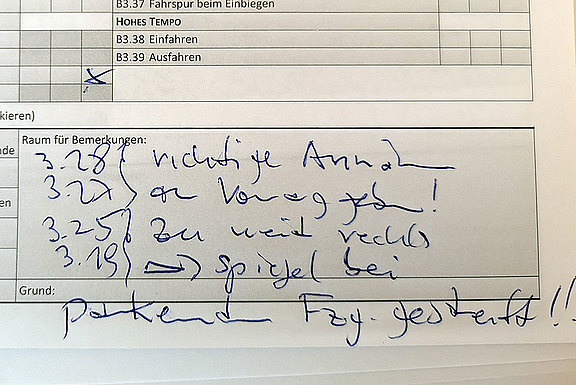 B3.37 Fahrspur beim Einbiegen
HOHES TEMPO
B3.38 Einfahren
B3.39 Ausfahren
kieren)
nde
en
Raum für Bemerkungen:
3.28 } richtige Annahm
3.27 } an Vorrang geben!
3.25 } zu weit rechts
3.19 } => Spiegel bei
Grund:
Parkendem Fzg. gestreift!!